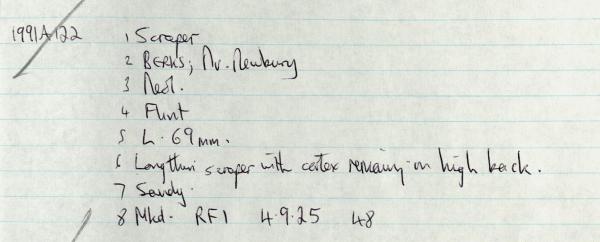 1991A122 1 Scraper
2 BERKS; Nr. Newbury
3 Neol.
4 Flint
5 L. 69mm.
6 Long thin scraper with cortex remaining on high back.
7 Sandy.
8 Mkd. RF1 4.9.25 48